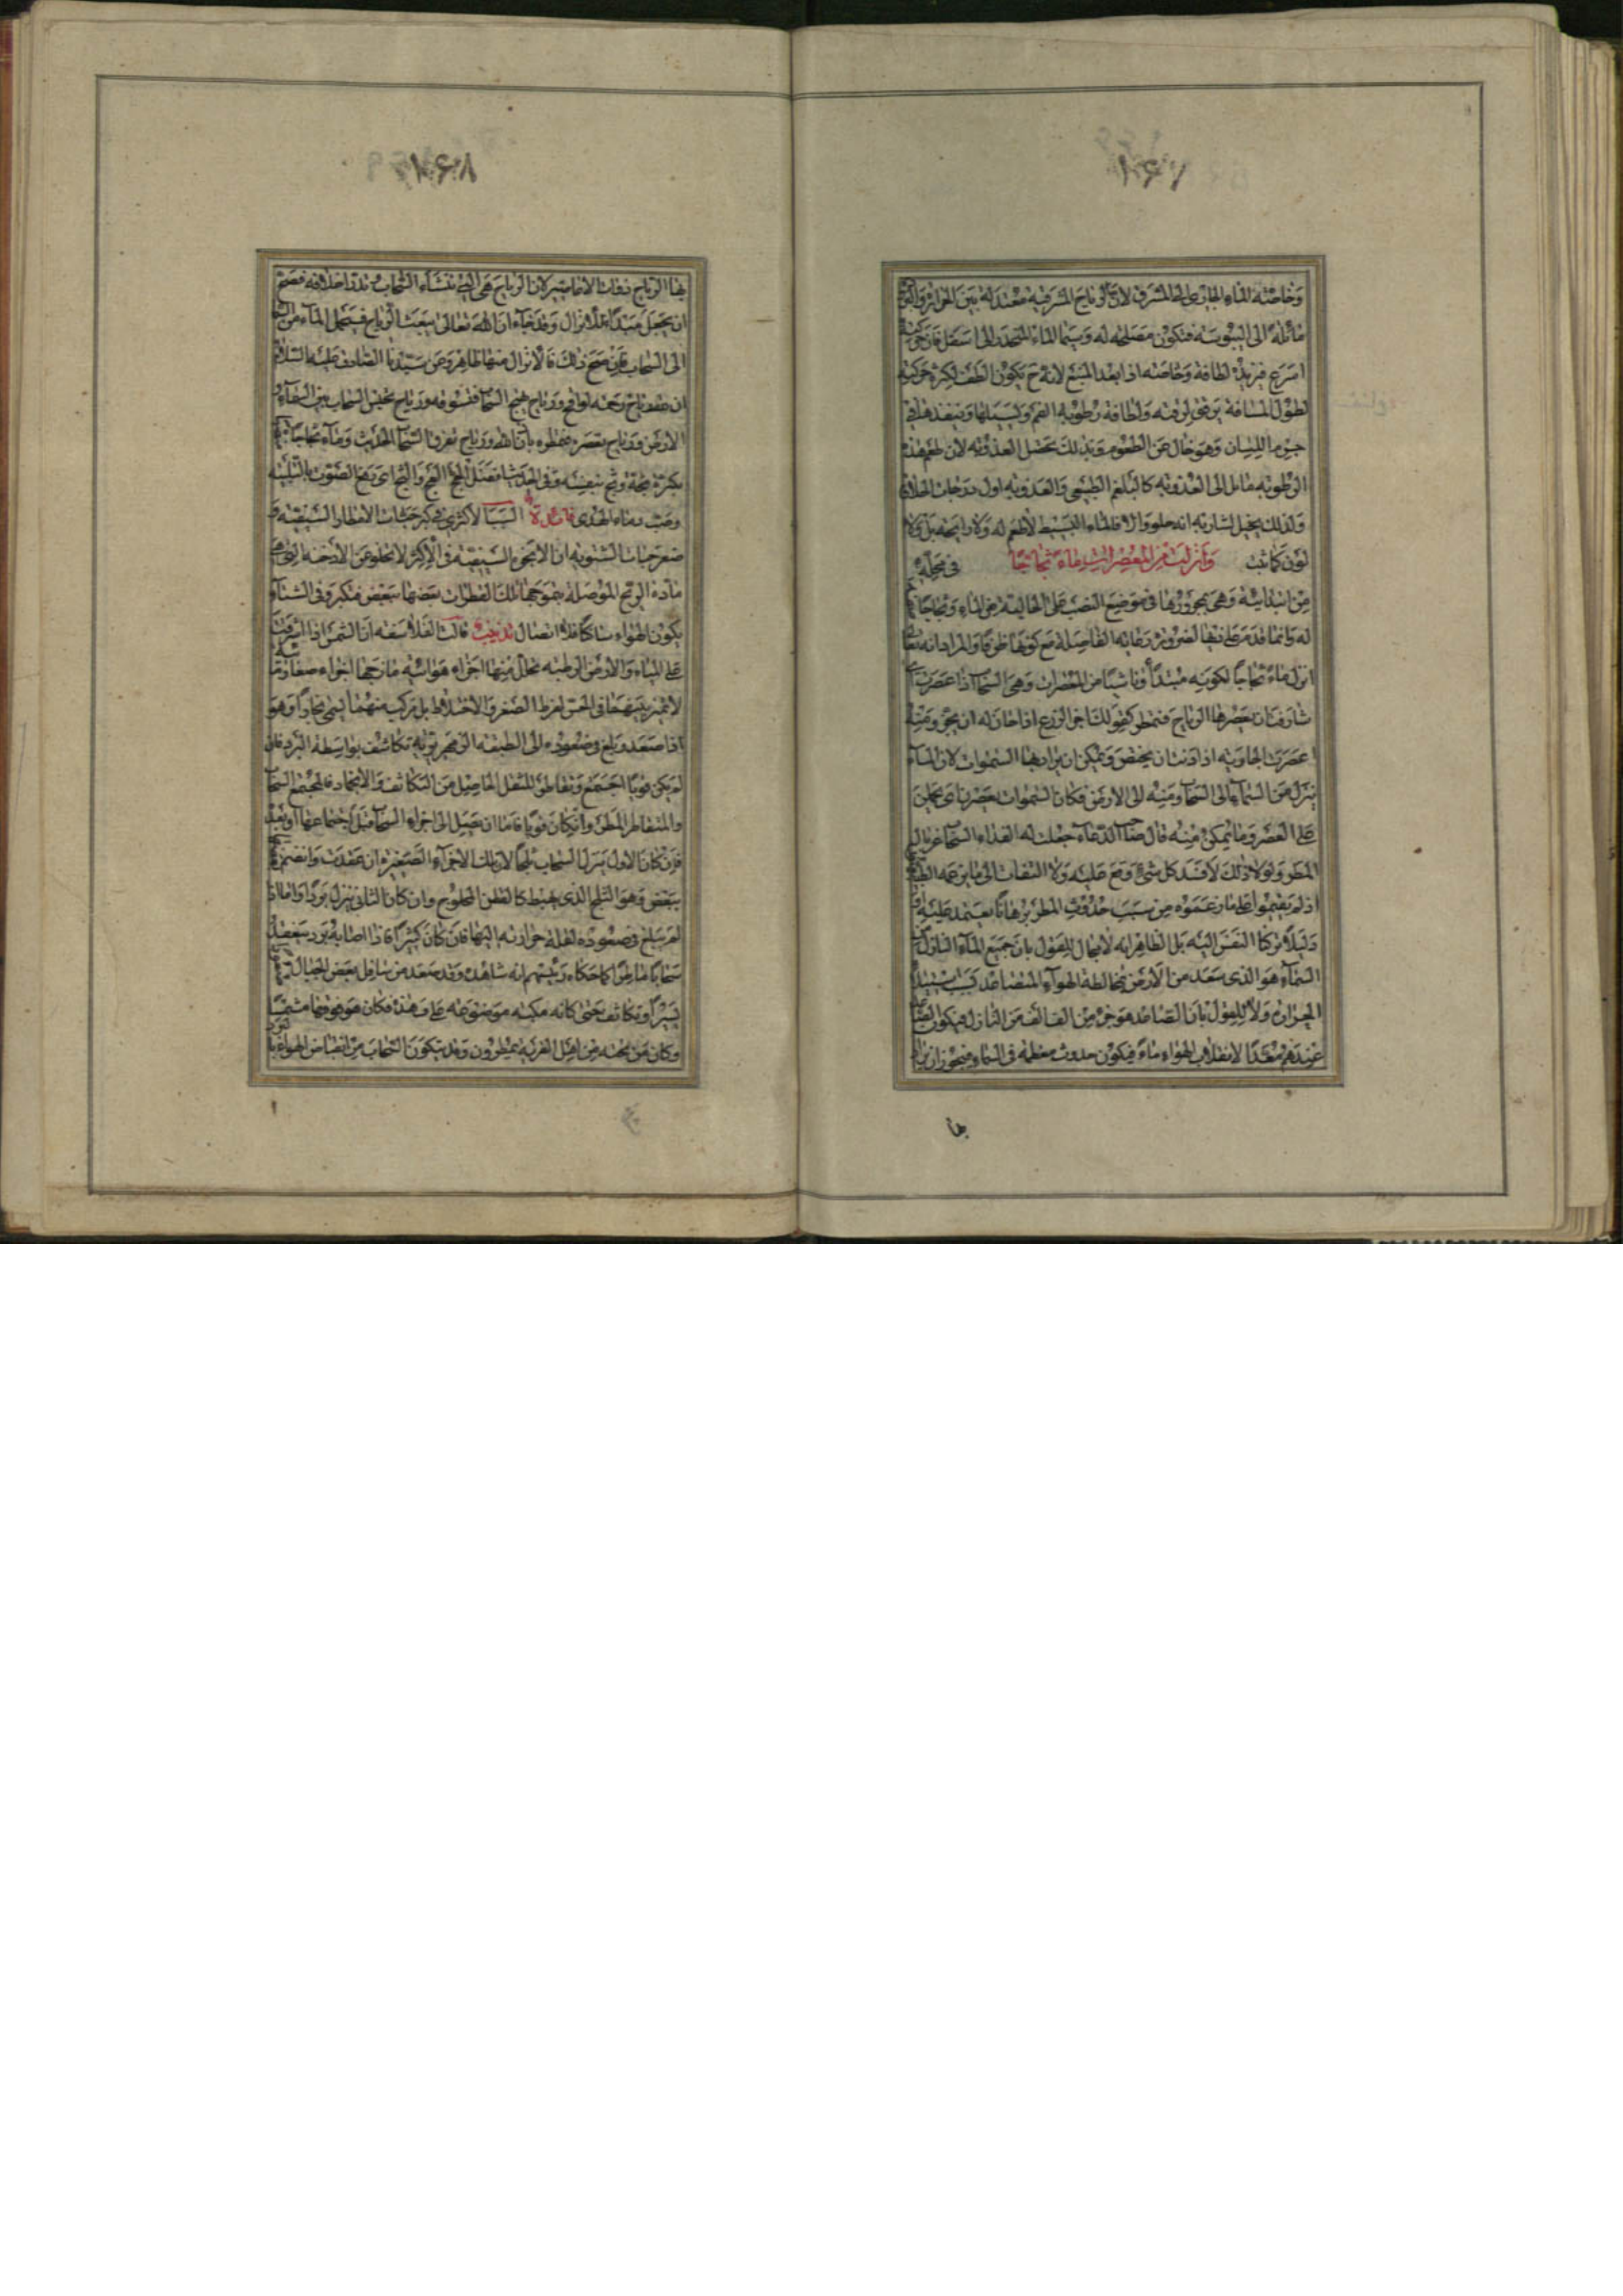 ١٦٧
وخاصته الماء الجاري الى المشرق لان الرياح المشرقية معتدلة بين الحرارة والبرودة
مائلة الى اليبوسة فتكون مصلحة له وسيما الماء المنحدر الى اسفل فان حركته
اسرع فيزيد لطافة وخاصته اذا بعد المنبع لانه ح يكون الطف لكثرة حركته
لطول المسافة يرقى لرقته ولطافة رطوبة الفم ويسيلها وينفذها في
جرم اللسان وهو خال عن الطعوم وبذلك يحصل العذوبة لان طعم هذه
الرطوبة مائل الى العذوبة كالبلغم الطبيعي والعذوبة اول درجات الحلاوة
ولذلك يخيل لشاربه انه حلو والا فالماء البسيط لا طعم له ولا رايحة بل ولا
لون كما ثبت في محله وانزلنا من المعصرات ماء ثجاجا
من ابتدائية وهي مجرورها في موضع النصب على الحالية من الماء وثجاجا
له وانما قدم عليها لضرورة رعاية الفاصلة مع كونها ظرفا والمراد انه تعالى
انزل ماء ثجاجا لكونه مبتدأ وناشيا من المعصرات وهي السحاب اذا عصرت اي
شارفت ان يعصرها الرياح فتمطر كقولك اجز الزرع اذا حان له ان يجز ومنه
اعصرت الجارية اذا دنت ان تحيض ويمكن ان يراد بها السموات لان الماء
ينزل من السماء الى السحاب ومنه الى الارض فكان السموات يعصرن اي يحملن
على العصر وما يمكن منه قال صاحب الدعاء جعلت له الغذاء السحاب غربال
المطر ولولا ذلك لافسد كل شيء وقع عليه ولا التفات الى ما يزعمه الطبا
اذ لم يقيموا على ما زعموه من سبب حدوث المطر برهانا يعتمد عليه او
دليلا يركن النفس اليه بل الظاهر انه لا مجال للقول بان جميع الماء النازل من
السماء هو الذي صعد من الارض بمخالطة الهواء المتصاعد بسبب
الحرارة ولا للقول بان الصاعد هو جزء من الف الف من النازل فيكون الصاعد
عندهم معدا لانقلاب الهواء ماء فيكون حدوث معظمه في السماء فيجوز ان يراد
بها
١٦٨
بها الرياح ذوات الاعاصير لان الرياح هي التي تنشاء السحاب وتدر اخلافه فصح
ان يجعل مبتدأ للانزال وقد جاء ان الله تعالى يبعث الرياح فيحمل الماء من السماء
الى السحاب فان صح ذلك فالانزال منها ظاهر وعن سيدنا الصادق عليه السلام
ان لله رياح رحمة لواقح ورياح تهيج السحاب فتسوقه ورياح تحبس السحاب بين السماء و
الارض ورياح تعصره فتمطره باذن الله ورياح تفرق السحاب الحديث وماء ثجاجا اي
بكثرة يقال ثجه وثج بنفسه وفي الحديث افضل الحج العج والثج اي رفع الصوت بالتلبية
وصب دماء الهدي فائدة السبب الاكثري في كبر حبات الامطار الصيفية و
صغر حبات الشتوية ان الابخرة الصيفية في الاكثر لا تخلو عن الادخنة التي هي
مادة الريح الموصلة بتموجها تلك القطرات بعضها ببعض فتكبر وفي الشتاء
يكون الهواء ساكنا فلا اتصال تذنيب قالت الفلاسفة ان الشمس اذا اشرقت
على المياه والارض الرطبة تحلل منها اجزاء هوائية مازجها اجزاء صغار مائية
لا تميز بينهما في الحس لفرط الصغر والاختلاط بل تركب منهما يسمى بخارا وهو
اذا صعد وبلغ في صعوده الى الطبقة الزمهريرية تكاثف بواسطة البرد فان
لم يكن قويا اجتمع وتقاطر للثقل الحاصل من التكاثف والانجماد فالمجتمع السحاب
والمتقاطر المطر وان كان قويا فاما ان يصل الى اجزاء السحاب قبل اجتماعها او بعده
فان كان الاول ينزل السحاب ثلجا لان تلك الاجزاء الصغيرة ان عقدت وانضم
ببعض وهو الثلج الذي يهبط كالقطن المحلوج وان كان الثاني ينزل بردا واما اذا
لم يبلغ في صعوده لقلة حرارته اليها فان كان كثيرا فاذا اصابه برد ينعقد
سحابا ماطرا كما حكاه بعضهم انه شاهده وقد صعد من سافل بعض الجبال
يسيرا وتكاثف حتى كانه مكبه موضوعة على وهدة فكان هو فوقها مشمسا
وكان من تحته من اهل القرية يمطرون وقد يتكون السحاب من انقباض الهواء